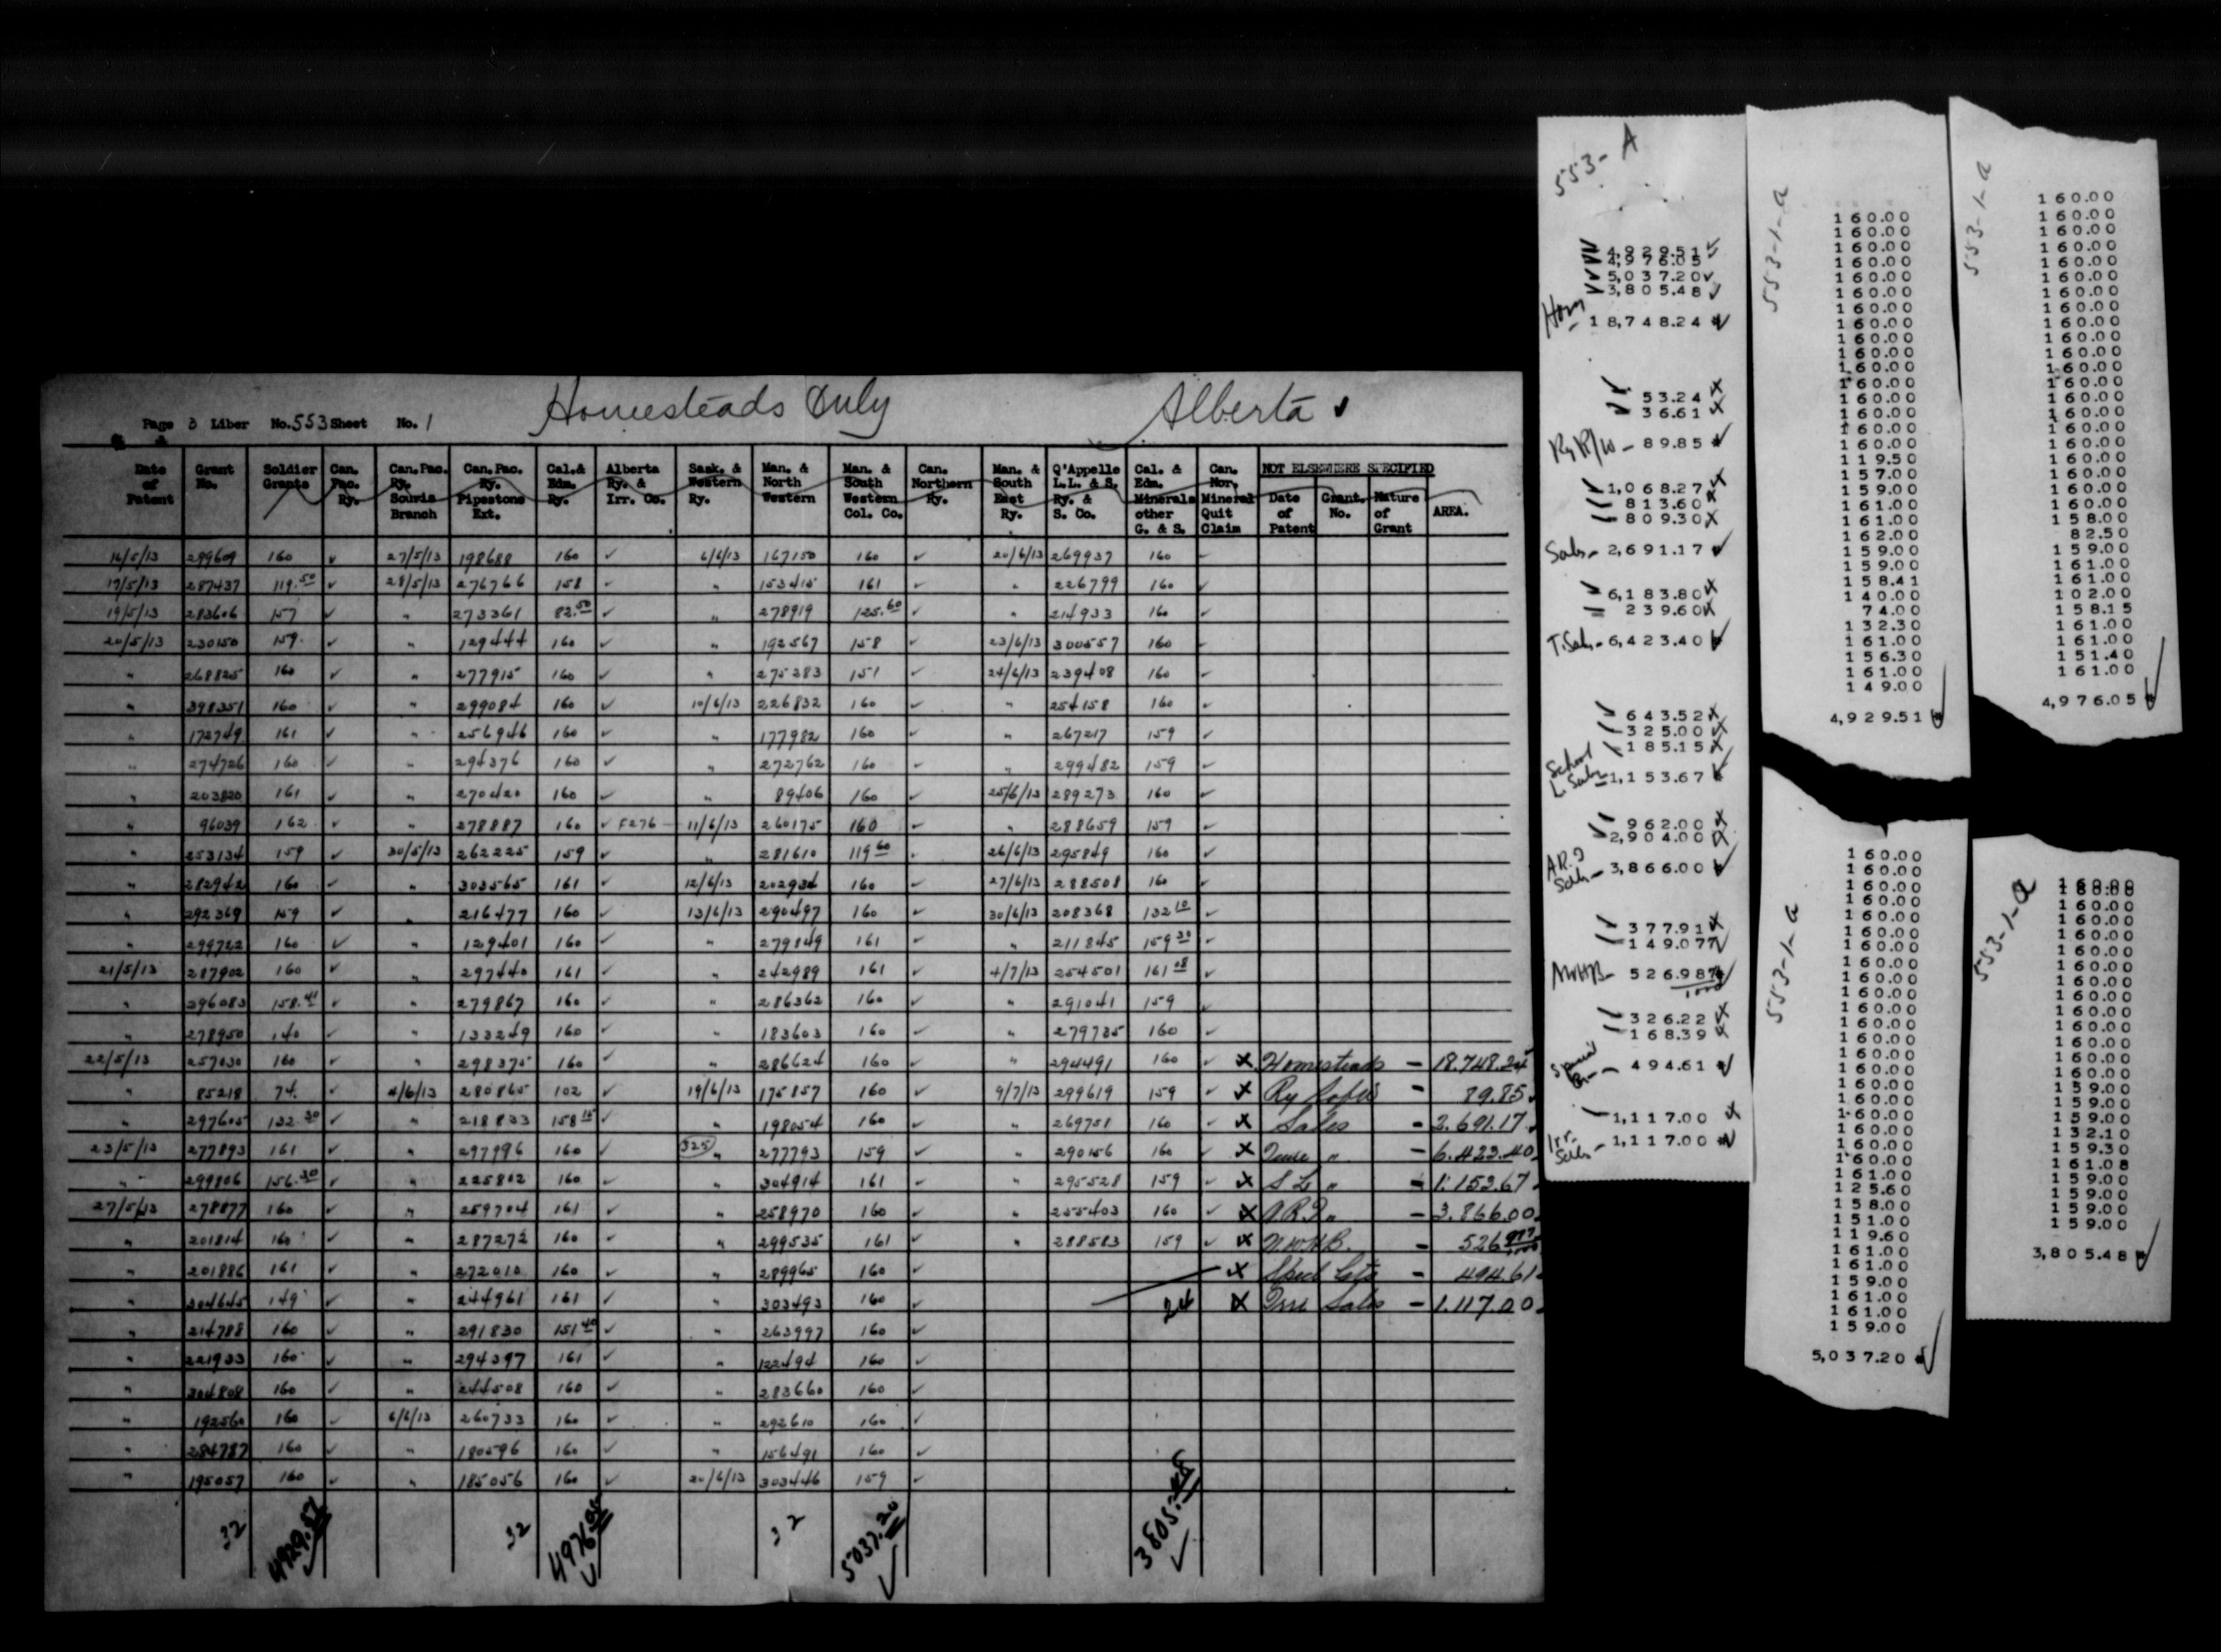 Homesteads Only Alberta ✓
Page 3 Liber No. 553 Sheet No. 1
Date of Patent | Grant No. | Soldier Grants | Can. Pac. Ry. | Can. Pac. Ry. Souris Branch | Can. Pac. Ry. Pipestone Ext. | Cal. & Edm. Ry. | Alberta Ry. & Irr. Co. | Sask. & Western Ry. | Man. & North Western | Man. & South Western Col. Co. | Can. Northern Ry. | Man. & South East Ry. | Q'Appelle L.L. & S. Ry. & S. Co. | Cal. & Edm. Minerals other G. & S. | Can. Nor. Mineral Quit Claim | NOT ELSEWHERE SPECIFIED Date of Patent | Grant. No. | Nature of Grant | AREA.
16/5/13 299609 160 ✓ 27/5/13 198688 160 ✓ 6/6/13 167150 160 ✓ 20/6/13 269937 160 ✓
17/5/13 287437 119.50 ✓ 28/5/13 276766 158 ✓ " 153415 161 ✓ " 226799 160 ✓
19/5/13 283606 157 ✓ " 273361 82.50 ✓ " 278919 125.60 ✓ " 214933 160 ✓
20/5/13 230150 159 ✓ " 129444 160 ✓ " 192567 158 ✓ 23/6/13 300557 160 ✓
" 268825 160 ✓ " 277915 160 ✓ " 275283 151 ✓ 24/6/13 239408 160 ✓
" 298351 160 ✓ " 299084 160 ✓ 10/6/13 226832 160 ✓ " 254158 160 ✓
" 172749 161 ✓ " 256946 160 ✓ " 177982 160 ✓ " 267217 159 ✓
" 274726 160 ✓ " 294376 160 ✓ " 272762 160 ✓ " 299482 159 ✓
" 203820 161 ✓ " 270420 160 ✓ " 89406 160 ✓ 25/6/13 289273 160 ✓
" 96039 162 ✓ " 278887 160 ✓ F276 11/6/13 260175 160 ✓ " 288659 159 ✓
" 253134 159 ✓ 30/5/13 262225 159 ✓ " 281610 119.60 ✓ 26/6/13 295849 160 ✓
" 282942 160 ✓ " 303565 161 ✓ 12/6/13 202934 160 ✓ 27/6/13 288508 160 ✓
" 292369 159 ✓ " 216477 160 ✓ 13/6/13 290497 160 ✓ 30/6/13 208368 132.10 ✓
" 299722 160 ✓ " 129401 160 ✓ " 279849 161 ✓ " 211845 159.30 ✓
21/5/13 287902 160 ✓ " 297440 161 ✓ " 242989 161 ✓ 4/7/13 254501 161.08 ✓
" 296083 158.41 ✓ " 279867 160 ✓ " 286362 160 ✓ " 291041 159 ✓
" 278950 140 ✓ " 133249 160 ✓ " 183603 160 ✓ " 279735 160 ✓
22/5/13 257030 160 ✓ " 298375 160 ✓ " 286624 160 ✓ " 294491 160 ✓ x Homesteads - 18.748.24
" 85218 74. ✓ 4/6/13 280865 102 ✓ 19/6/13 175857 160 ✓ 9/7/13 299619 159 ✓ x Ry - 89.85
" 297605 132.30 ✓ " 218833 158.15 ✓ " 198054 160 ✓ " 269751 160 ✓ x Sales - 2.691.17
23/5/13 277893 161 ✓ " 297996 160 ✓ 325 " 277793 159 ✓ " 290156 160 ✓ x " - 6.423.40
" 299806 156.30 ✓ " 225802 160 ✓ " 304914 161 ✓ " 295528 159 ✓ x S L " - 1.153.67
27/5/13 278877 160 ✓ " 259704 161 ✓ " 258970 160 ✓ " 255403 160 ✓ x A.R.I. " - 3.866.00
" 201814 160 ✓ " 287272 160 ✓ " 299535 161 ✓ " 288583 159 ✓ x N.W.H.B. - 526 987/1000
" 201886 161 ✓ " 272010 160 ✓ " 289965 160 ✓ x Specl Gts - 494.61
" 304645 149 ✓ " 244961 161 ✓ " 303493 160 ✓ 24 x Irri Sales - 1.117.00
" 214788 160 ✓ " 291830 151.40 ✓ " 263997 160 ✓
" 221933 160 ✓ " 294397 161 ✓ " 122494 160 ✓
" 304808 160 ✓ " 244508 160 ✓ " 283660 160 ✓
" 192560 160 ✓ 6/6/13 260733 160 ✓ " 292610 160 ✓
" 284787 160 ✓ " 180596 160 ✓ " 156491 160 ✓
" 195057 160 ✓ " 185056 160 ✓ 20/6/13 303446 159 ✓
32 4929.51 32 4976.05 ✓ 32 5037.20 ✓ 3805.48 ✓
553- A
4,929.51
4,976.05
5,037.20
3,805.48
Hom - 18,748.24
53.24
36.61
Ry R/W - 89.85
1,068.27
813.60
809.30
Sales - 2,691.17
6,183.80
239.60
T. Sales - 6,423.40
643.52
325.00
185.15
School L. Sales - 1,153.67
962.00
2,904.00
A.R.I Sales - 3,866.00
377.91
149.077
NWHB - 526.987
1000
326.22
168.39
Special Gr - 494.61
1,117.00
Irr. Sales - 1,117.00
553-1-a
160.00
160.00
160.00
160.00
160.00
160.00
160.00
160.00
160.00
160.00
160.00
160.00
160.00
160.00
160.00
160.00
119.50
157.00
159.00
161.00
161.00
162.00
159.00
159.00
158.41
140.00
74.00
132.30
161.00
156.30
161.00
149.00
4,929.51
553-1-a
160.00
160.00
160.00
160.00
160.00
160.00
160.00
160.00
160.00
160.00
160.00
160.00
160.00
160.00
160.00
160.00
160.00
160.00
160.00
160.00
160.00
158.00
82.50
159.00
161.00
161.00
102.00
158.15
161.00
161.00
151.40
161.00
4,976.05
553-1-a
160.00
160.00
160.00
160.00
160.00
160.00
160.00
160.00
160.00
160.00
160.00
160.00
160.00
160.00
160.00
160.00
160.00
160.00
160.00
160.00
160.00
161.00
125.60
158.00
151.00
119.60
161.00
161.00
159.00
161.00
161.00
159.00
5,037.20
553-1-a
160.00
160.00
160.00
160.00
160.00
160.00
160.00
160.00
160.00
160.00
160.00
160.00
160.00
159.00
159.00
159.00
132.10
159.30
161.08
159.00
159.00
159.00
159.00
3,805.48